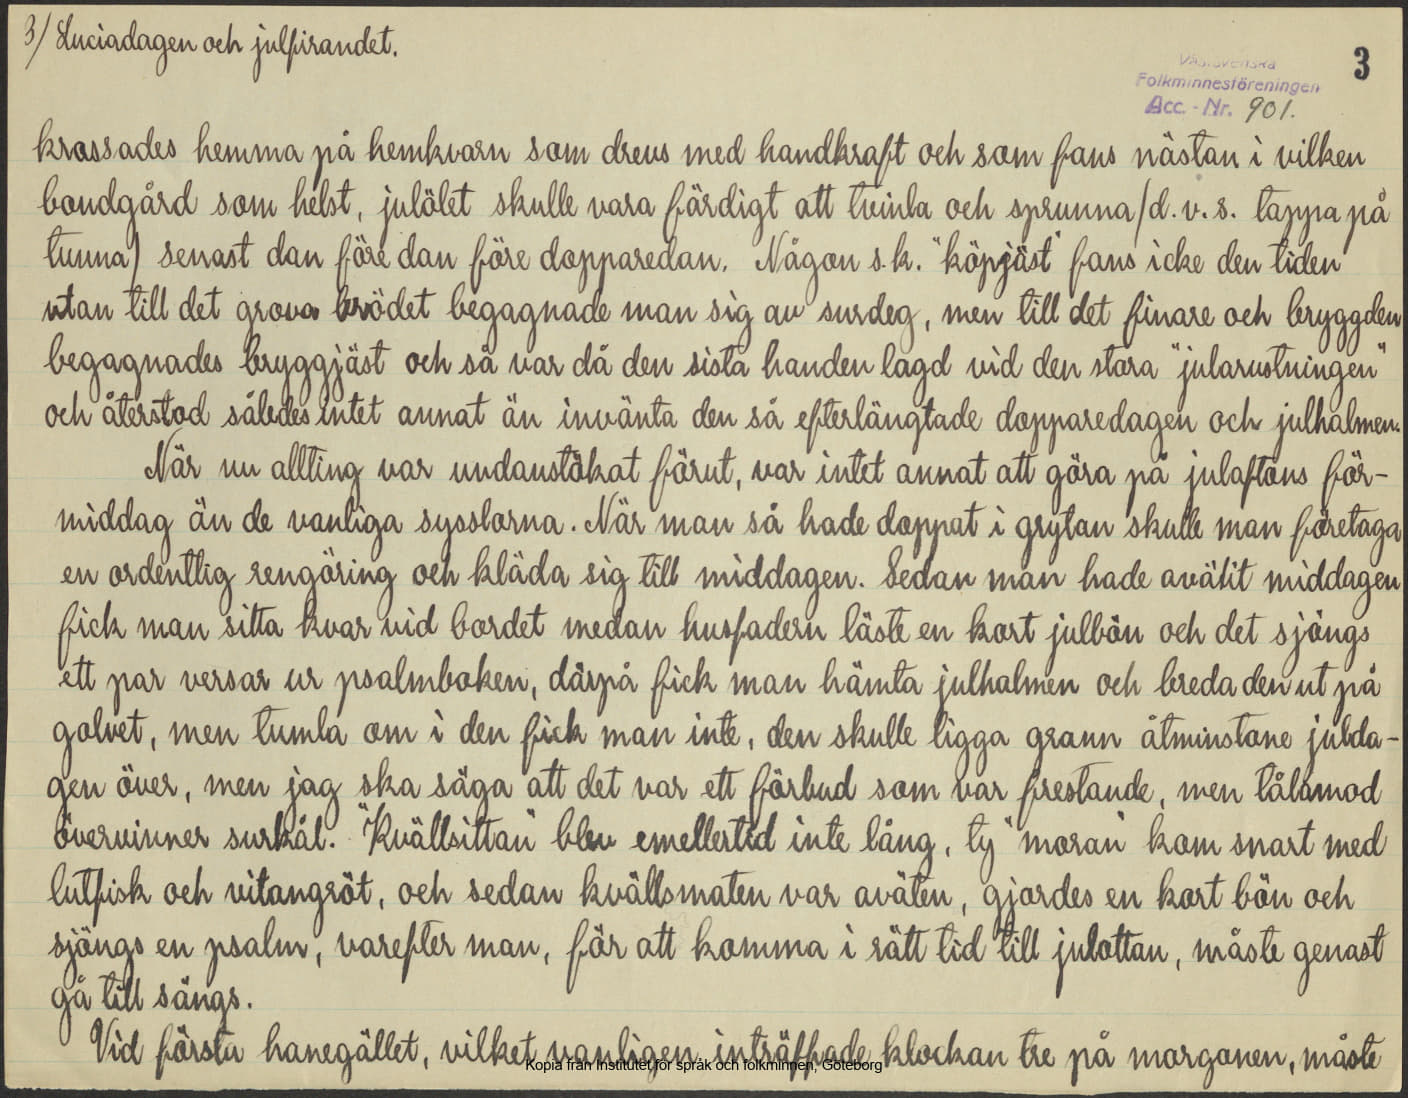 3/ Luciadagen och julfirandet.
3
Västsvenska
Folkminnesföreningen
Acc. - Nr. 901.
krossades hemma på hemkvarn som drevs med handkraft och som fans nästan i vilken
bondgård som helst, julölet skulle vara färdigt att tvinla och sprunna/d.v.s. tappa på
tunna) senast dan före dan före dopparedan. Någon s.k. "köpjäst" fans icke den tiden
utan till det grova brödet begagnade man sig av surdeg, men till det finare och bryggden
begagnades bryggjäst och så var då den sista handen lagd vid den stora "julrustningen"
och återstod således intet annat än invänta den så efterlängtade dopparedagen och julhalmen.
När nu allting var undanstökat förut, var intet annat att göra på julaftons för-
middag än de vanliga sysslorna. När man så hade doppat i grytan skulle man företaga
en ordentlig rengöring och kläda sig till middagen. Sedan man hade avätit middagen
fick man sitta kvar vid bordet medan husfadern läste en kort julbön och det sjöngs
ett par versar ur psalmboken, därpå fick man hämta julhalmen och breda den ut på
golvet, men tumla om i den fick man inte, den skulle ligga grann åtminstone julda-
gen över, men jag ska säga att det var ett förbud som var frestande, men tålamod
övervinner surkål. "Kvällsittan" blev emellertid inte lång, ty "moran" kom snart med
lutfisk och vitangröt, och sedan kvällsmaten var aväten, gjordes en kort bön och
sjöngs en psalm, varefter man, för att komma i rätt tid till julottan, måste genast
gå till sängs.
Vid första hanegället, vilket vanligen inträffade klockan tre på morgonen, måste
Kopia från Institutet för språk och folkminnen, Göteborg